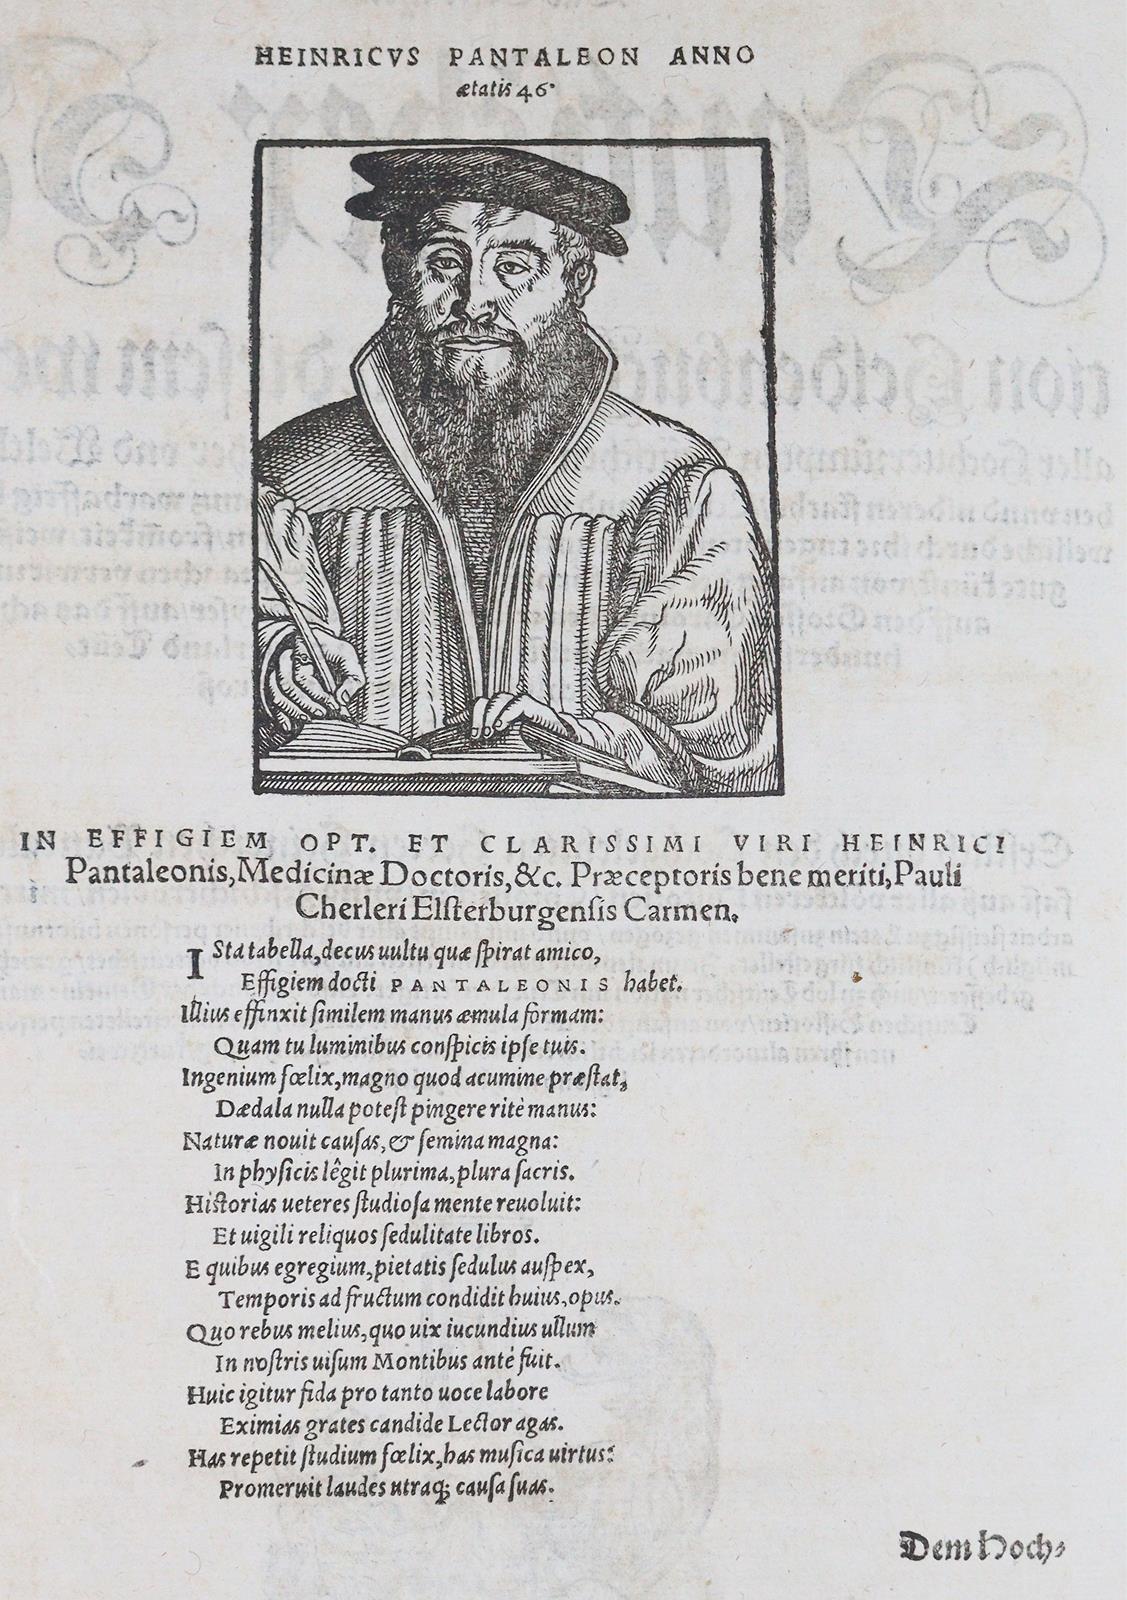 HEINRICVS PANTALEON ANNO
ætatis 46.
IN EFFIGIEM OPT. ET CLARISSIMI VIRI HEINRICI
Pantaleonis, Medicinæ Doctoris, &c. Præceptoris bene meriti, Pauli
Cherleri Elſterburgenſis Carmen.
ISta tabella, decus uultu quæ ſpirat amico,
Effigiem docti PANTALEONIS habet.
Illius effinxit ſimilem manus æmula formam:
Quam tu luminibus conſpicis ipſe tuis.
Ingenium fœlix, magno quod acumine præſtat,
Dædala nulla poteſt pingere ritè manus:
Naturæ nouit cauſas, & ſemina magna:
In phyſicis lêgit plurima, plura ſacris.
Hiſtorias ueteres ſtudioſa mente reuoluit:
Et uigili reliquos ſedulitate libros.
E quibus egregium, pietatis ſedulus auſpex,
Temporis ad fructum condidit huius, opus.
Quo rebus melius, quo uix iucundius ullum
In noſtris uiſum Montibus antè fuit.
Huic igitur fida pro tanto uoce labore
Eximias grates candide Lector agas.
Has repetit ſtudium fœlix, has muſica uirtus:
Promeruit laudes utraq; cauſa ſuas.
Dem Hoch⸗